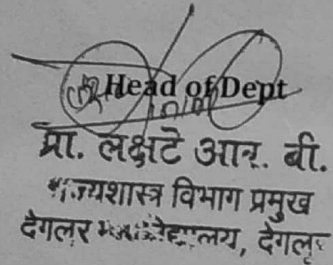 Head of Dept
प्रा. लक्षटे आर. बी.
राज्यशास्त्र विभाग प्रमुख
देगलूर महाविद्यालय, देगलूर